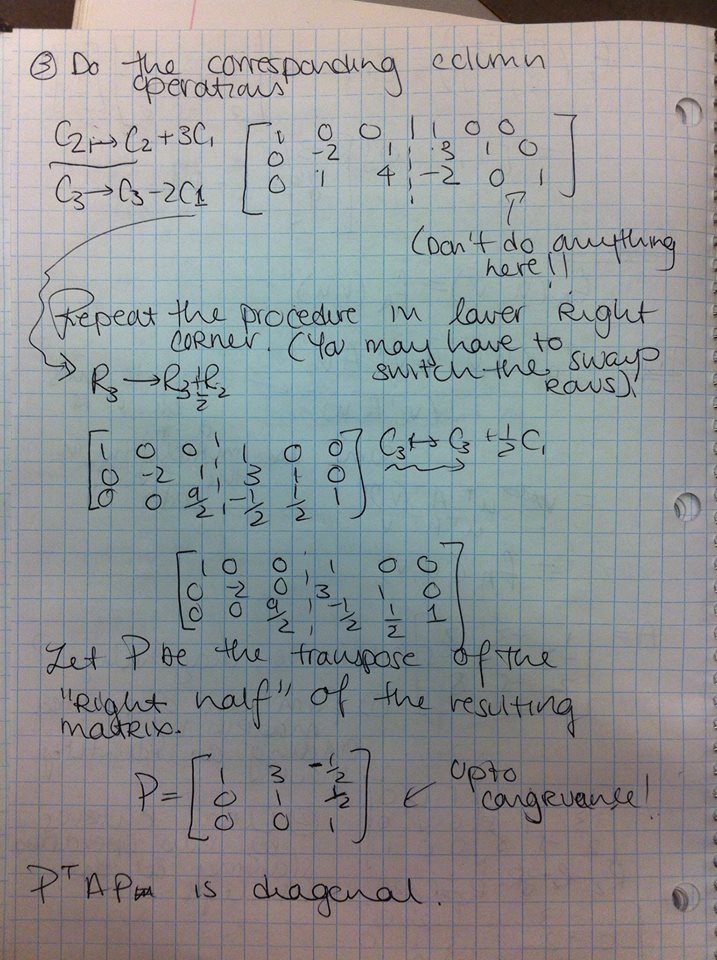 ③ Do the corresponding column
operations
C₂ ↦ C₂ + 3C₁
C₃ → C₃ - 2C1
[ 1 0 0 | 1 0 0
0 -2 1 | 3 1 0
0 1 4 | -2 0 1 ]
(Don't do anything
here!!
Repeat the procedure in lower right
corner. (You may have to
switch the swap
rows).
R₃ → R₃ + 1/2 R₂
[ 1 0 0 | 1 0 0
0 -2 1 | 3 1 0
0 0 9/2 | -1/2 1/2 1 ]
C₃ ↦ C₃ + 1/2 C₁
[ 1 0 0 | 1 0 0
0 -2 0 | 3 1 0
0 0 9/2 | -1/2 1/2 1 ]
Let P be the transpose of the
"Right half" of the resulting
matrix.
P = [ 1 3 -1/2
0 1 1/2
0 0 1 ]
← up to
congruence!
PᵀAP is diagonal.